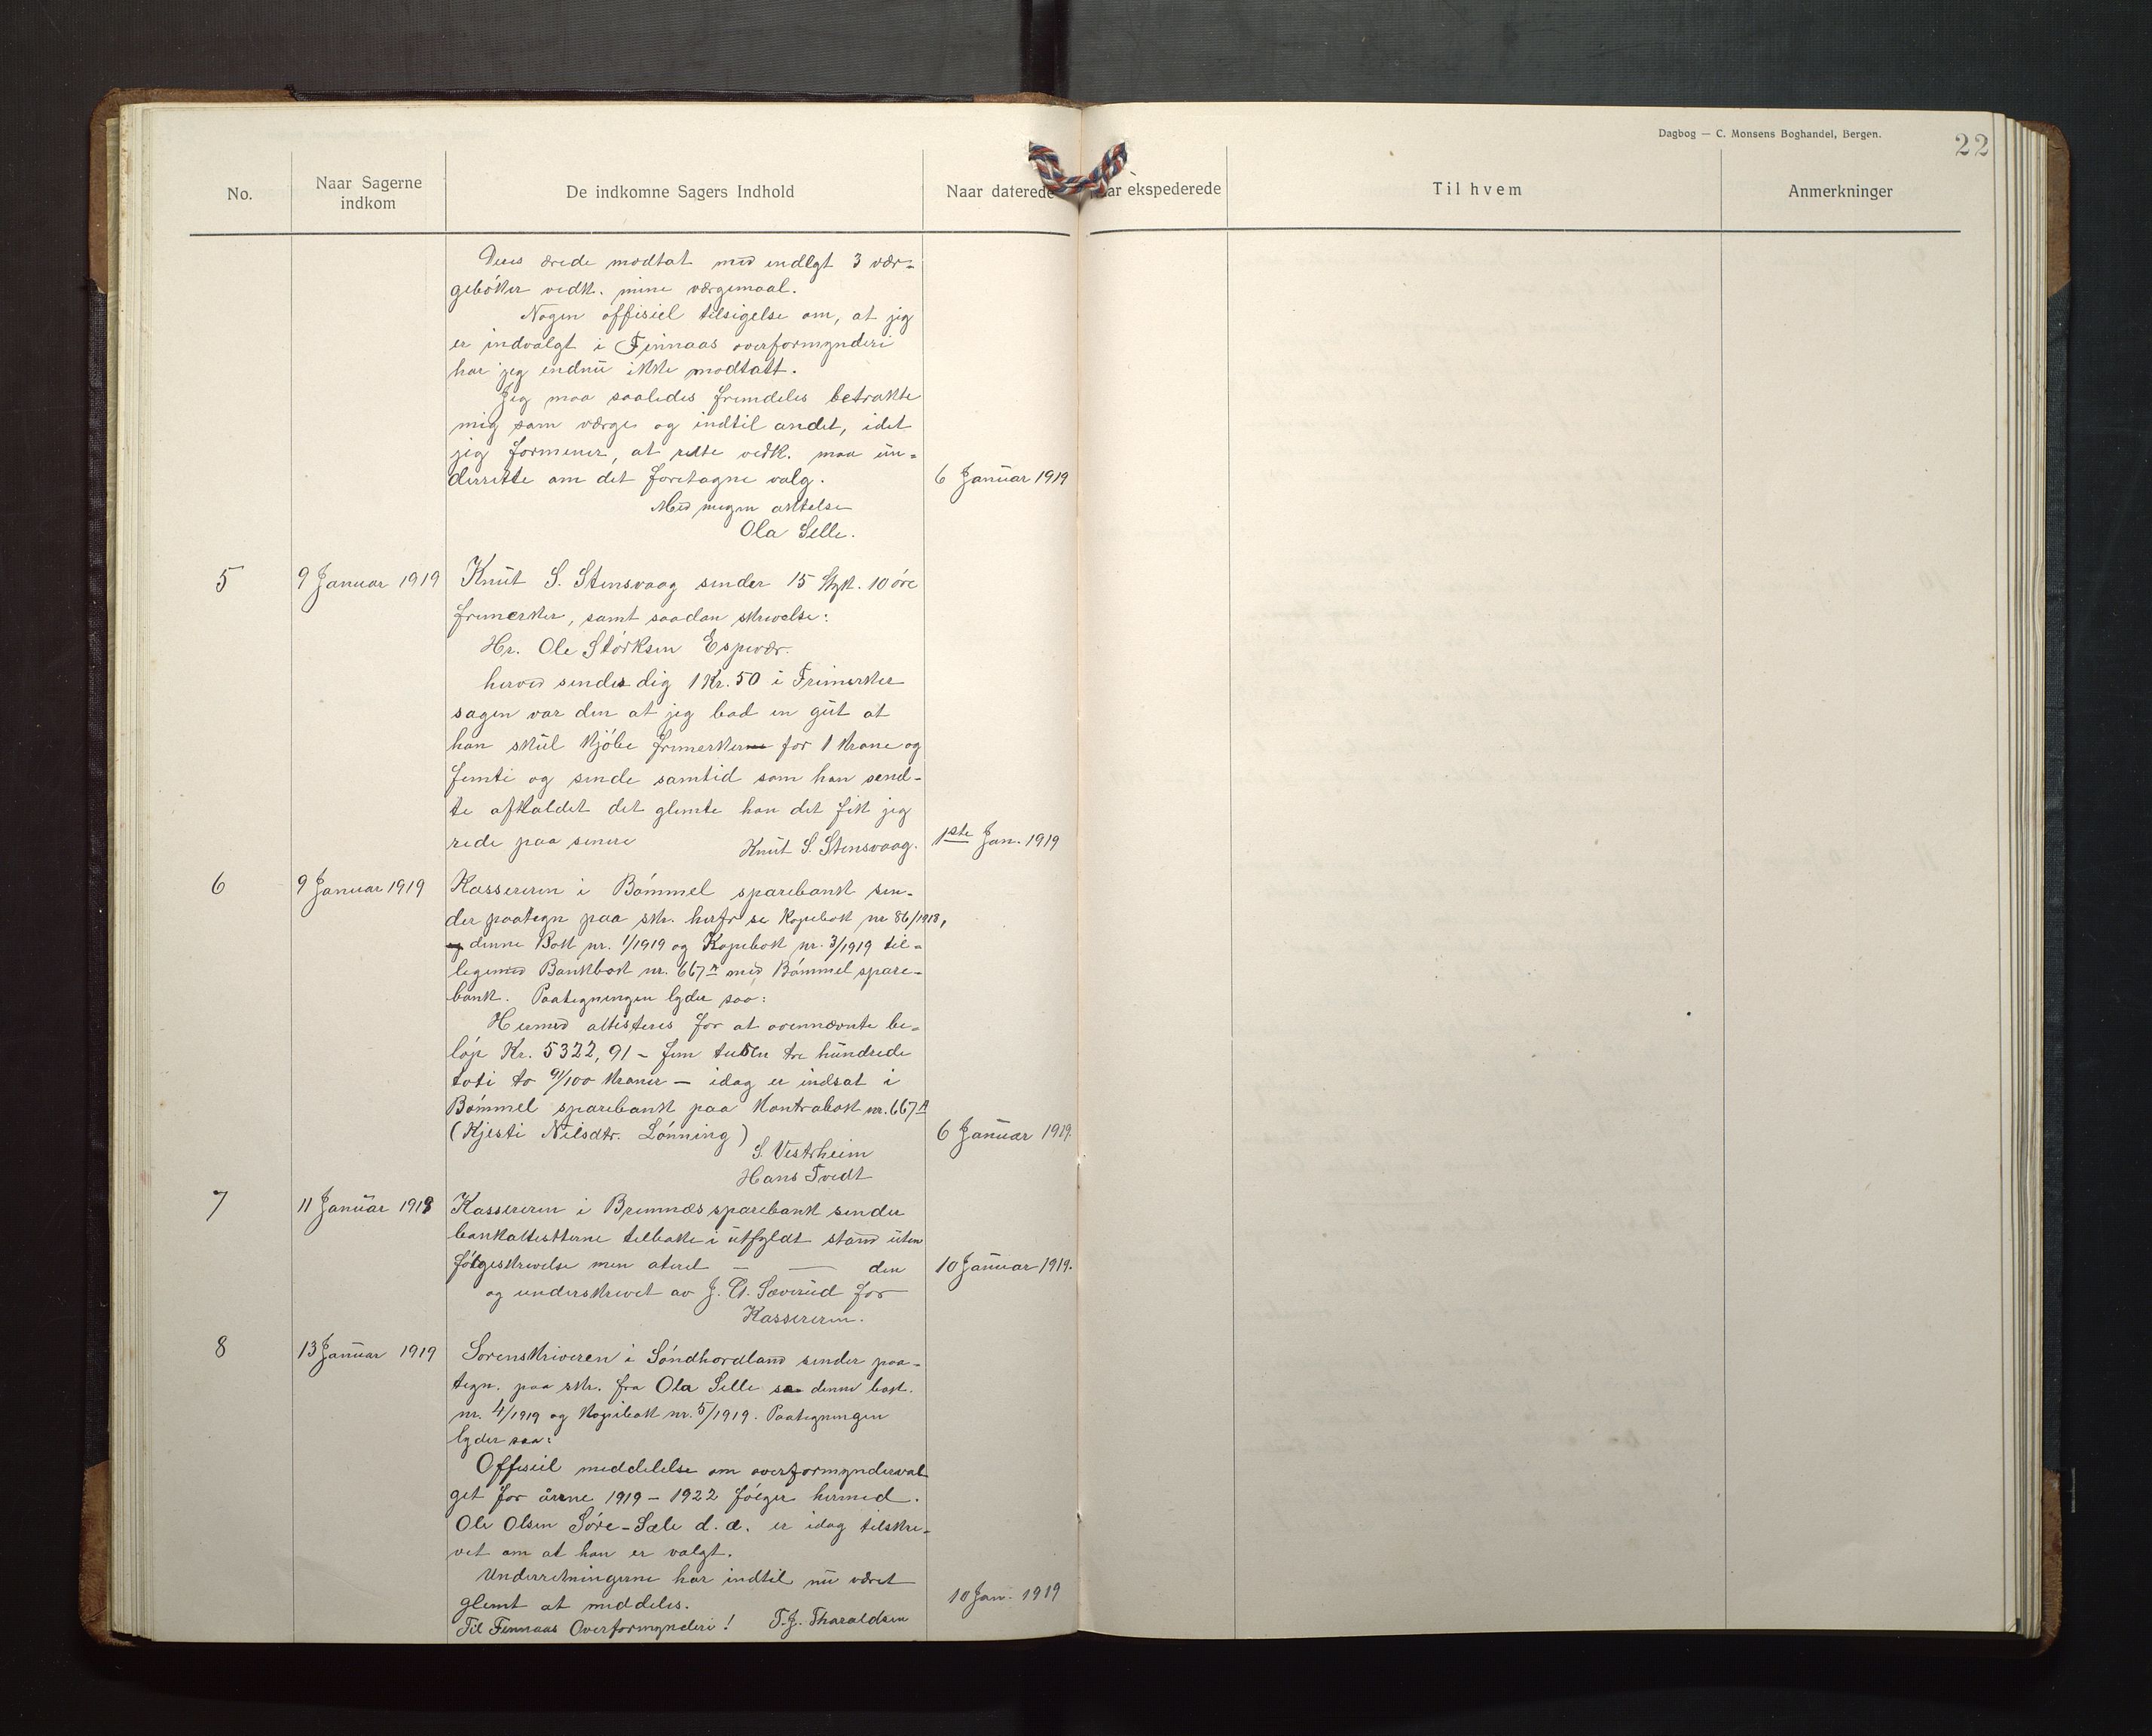 Dagbog — C. Monsens Boghandel, Bergen.
22
No.
Naar Sagerne indkom
De indkomne Sagers Indhold
Naar daterede
ekspederede
Til hvem
Anmerkninger
Deres ærede modtat med indlgt 3 vær-
gebøker vedk. mine værgemaal.
Nogen offisiel tilsigelse om, at jeg
er indvalgt i Finnaas overformynderi
har jeg endnu ikke modtatt.
Jeg maa saaledes fremdeles betrakte
mig som værge og indtil andet, idet
jeg formener, at rette vedk. maa un-
derrette om det foretagne valg.
6 Januar 1919
Med megen aktelse
Ola Selle.
5
9 Januar 1919
Knut S. Stensvaag sender 15 Styk. 10 øre
frimerker, samt saadan skrivelse:
Hr. Ole Størksen Espevær.
herved sendes dig 1 Kr. 50 i Frimerker
sagen var den at jeg bad en gut at
han skul kjøbe frimerker for 1 krone og
femti og sende samtid som han send-
te afkaldet det glemte han det fik jeg
rede paa senere
Knut S. Stensvaag.
1ste Jan. 1919
6
9 Januar 1919
Kassereren i Bømmel sparebank sen-
der paategn paa skr. herfr se Kopibok nr 86/1918,
og denne Bok nr. 1/1919 og Kopibok nr. 3/1919 til-
legemed Bankbok nr. 667 A med Bømmel spare-
bank. Paategningen lyder saa:
Hermed attesteres for at ovennævnte be-
løp Kr. 5322,91 - fem tusen tre hundrede
toti to 91/100 kroner — idag er indsat i
Bømmel sparebank paa Kontrabok nr. 667 A
(Kjesti Nilsdtr. Lønning)
6 Januar 1919.
S. Vestrheim
Hans Tvedt
7
11 Januar 1919
Kassereren i Bremnæs sparebank sender
bankattesterne tilbake i utfyldt stand uten
følgeskrivelse men ateret — — den
10 Januar 1919.
og underskrevet av J. A. Sæverud for
Kassereren.
8
13 Januar 1919
Sorenskriveren i Søndhordland sender paa-
tegn. paa skr. fra Ola Selle se denne bok.
nr. 4/1919 og Kopibok nr. 5/1919. Paategningen
lyder saa:
Offisiel meddelelse om overformynderval
get for årene 1919 - 1922 følger hermed.
Ole Olsen Søre-Sæle d.æ. er idag tilskre-
vet om at han er valgt.
Underretningerne har indtil nu været
glemt at meddeles.
10 Jan. 1919
Til Finnaas Overformynderi! T.J. Tharaldsen